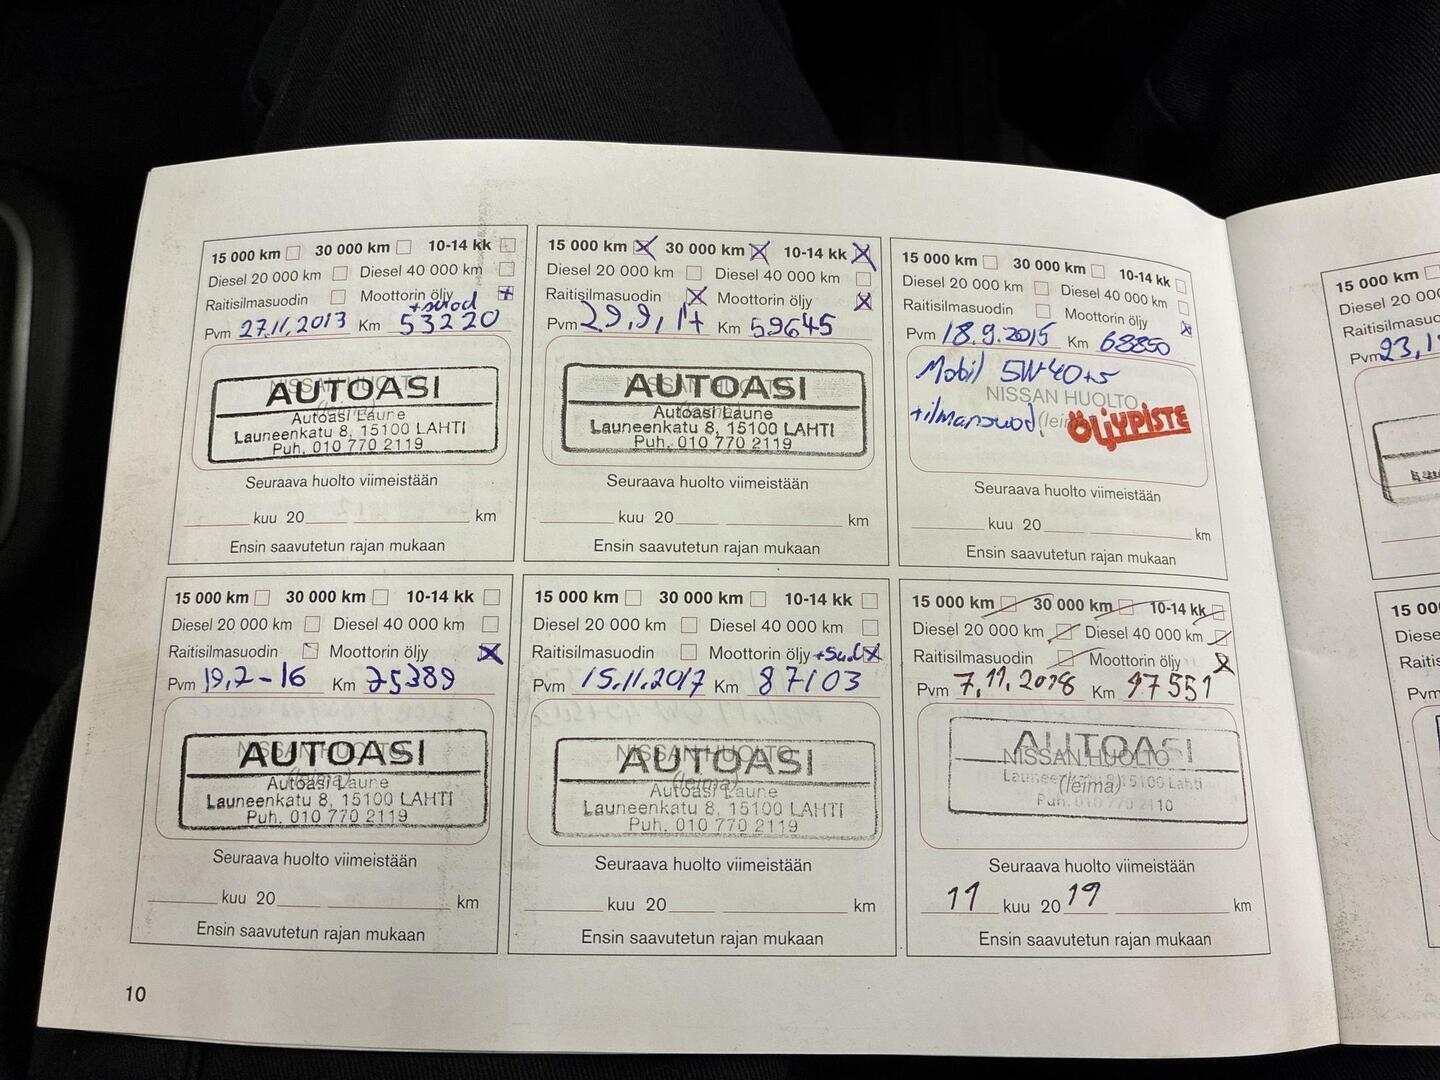 15 000 km 30 000 km 10-14 kk
Diesel 20 000 km Diesel 40 000 km
Raitisilmasuodin Moottorin öljy
+suod
Pvm 27.11.2013 Km 53220
NISSAN HUOLTO
AUTOASI
Autoasi Laune
Launeenkatu 8, 15100 LAHTI
Puh. 010 770 2119
Seuraava huolto viimeistään
kuu 20 km
Ensin saavutetun rajan mukaan
15 000 km 30 000 km 10-14 kk
Diesel 20 000 km Diesel 40 000 km
Raitisilmasuodin Moottorin öljy
Pvm 29,9, 14 Km 59645
AUTOASI
Autoasi Laune
Launeenkatu 8, 15100 LAHTI
Puh. 010 770 2119
Seuraava huolto viimeistään
kuu 20 km
Ensin saavutetun rajan mukaan
15 000 km 30 000 km 10-14 kk
Diesel 20 000 km Diesel 40 000 km
Raitisilmasuodin Moottorin öljy
Pvm 18.9.2015 Km 68850
Mobil 5W40+s
NISSAN HUOLTO
+ilmansuod. (leima)
ÖLJYPISTE
Seuraava huolto viimeistään
kuu 20 km
Ensin saavutetun rajan mukaan
15 000 km 30 000 km 10-14 kk
Diesel 20 000 km Diesel 40 000 km
Raitisilmasuodin Moottorin öljy
Pvm 19,2-16 Km 75389
NISSAN HUOLTO
AUTOASI
(leima)
Autoasi Laune
Launeenkatu 8, 15100 LAHTI
Puh. 010 770 2119
Seuraava huolto viimeistään
kuu 20 km
Ensin saavutetun rajan mukaan
15 000 km 30 000 km 10-14 kk
Diesel 20 000 km Diesel 40 000 km
Raitisilmasuodin Moottorin öljy
Pvm 15.11.2017 Km 87103
NISSAN HUOLTO
AUTOASI
(leima)
Autoasi Laune
Launeenkatu 8, 15100 LAHTI
Puh. 010 770 2119
Seuraava huolto viimeistään
kuu 20 km
Ensin saavutetun rajan mukaan
15 000 km 30 000 km 10-14 kk
Diesel 20 000 km Diesel 40 000 km
Raitisilmasuodin Moottorin öljy
Pvm 7.11.2018 Km 97551
AUTOASI
NISSAN HUOLTO
(leima)
Launeenkatu 8, 15100 Lahti
Seuraava huolto viimeistään
11 kuu 2019 km
Ensin saavutetun rajan mukaan
10
15 000 km
Pvm 23,1
15 0
Pvm